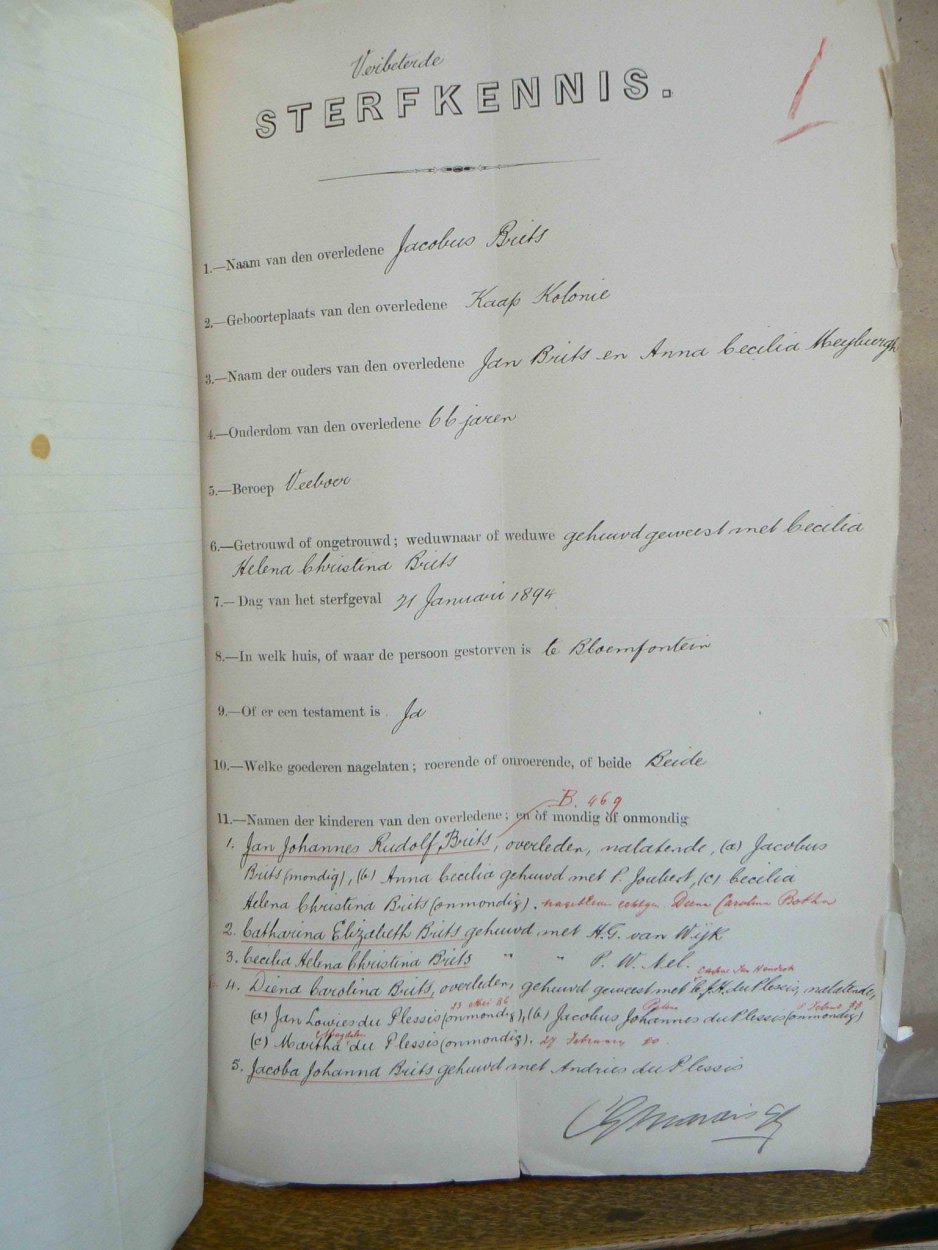 Verbeterde
STERFKENNIS.
1.—Naam van den overledene Jacobus Brits
2.—Geboorteplaats van den overledene Kaap Kolonie
3.—Naam der ouders van den overledene Jan Brits en Anna Cecilia Meyburgh
4.—Ouderdom van den overledene 66 jaren
5.—Beroep Veeboer
6.—Getrouwd of ongetrouwd; weduwnaar of weduwe gehuwd geweest met Cecilia
Helena Christina Brits
7.—Dag van het sterfgeval 21 Januari 1894
8.—In welk huis, of waar de persoon gestorven is te Bloemfontein
9.—Of er een testament is Ja
10.—Welke goederen nagelaten; roerende of onroerende, of beide Beide
B. 469
11.—Namen der kinderen van den overledene; en òf mondig òf onmondig
1. Jan Johannes Rudolf Brits, overleden, nalatende, (a) Jacobus
Brits (mondig), (b) Anna Cecilia gehuwd met P. Joubert, (c) Cecilia
Helena Christina Brits (onmondig). Diena Carolina Botha
2. Catharina Elizabeth Brits gehuwd met H.G. van Wijk
3. Cecilia Helena Christina Brits " " P. W. Nel.
4. Diena Carolina Brits, overleden, gehuwd geweest met C.J.H. du Plessis, nalatende,
23 Mei 86
(a) Jan Lowies du Plessis (onmondig), (b) Jacobus Johannes du Plessis (onmondig)
Magdalena
(c) Martha du Plessis (onmondig). 27 February 90
5. Jacoba Johanna Brits gehuwd met Andries du Plessis